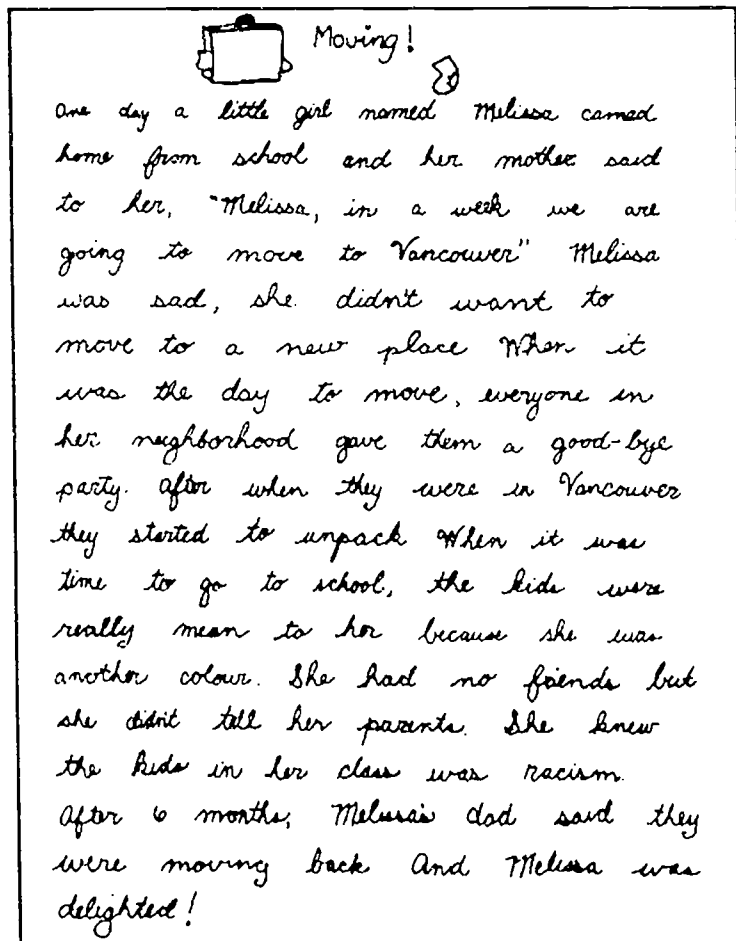 Moving!
One day a little girl named Melissa camed
home from school and her mother said
to her, "Melissa, in a week we are
going to move to Vancouver" Melissa
was sad, she didn't want to
move to a new place When it
was the day to move, everyone in
her neighborhood gave them a good-bye
party. After when they were in Vancouver
they started to unpack When it was
time to go to school, the kids were
really mean to her because she was
another colour. She had no friends but
she didn't tell her parents. She knew
the kids in her class was racism.
After 6 months, Melissa's dad said they
were moving back And Melissa was
delighted!